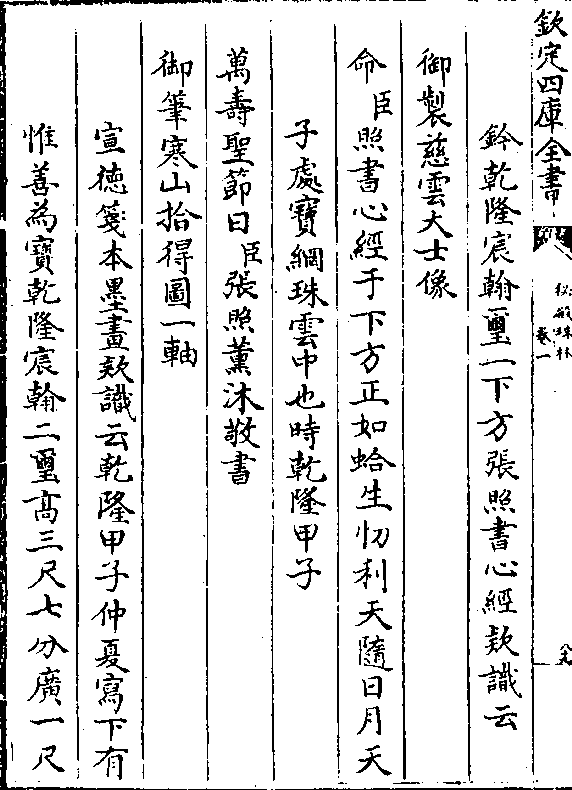 欽定四庫全書
秘殿珠林
卷一
鈐乾隆宸翰璽一下方張照書心經款識云
御製慈雲大士像
命臣照書心經于下方正如蛤生忉利天隨日月天
子處寶網珠雲中也時乾隆甲子
萬壽聖節日臣張照薰沐敬書
御筆寒山拾得圖一軸
宣徳箋本墨畫款識云乾隆甲子仲夏寫下有
惟善為寶乾隆宸翰二璽髙三尺七分廣一尺